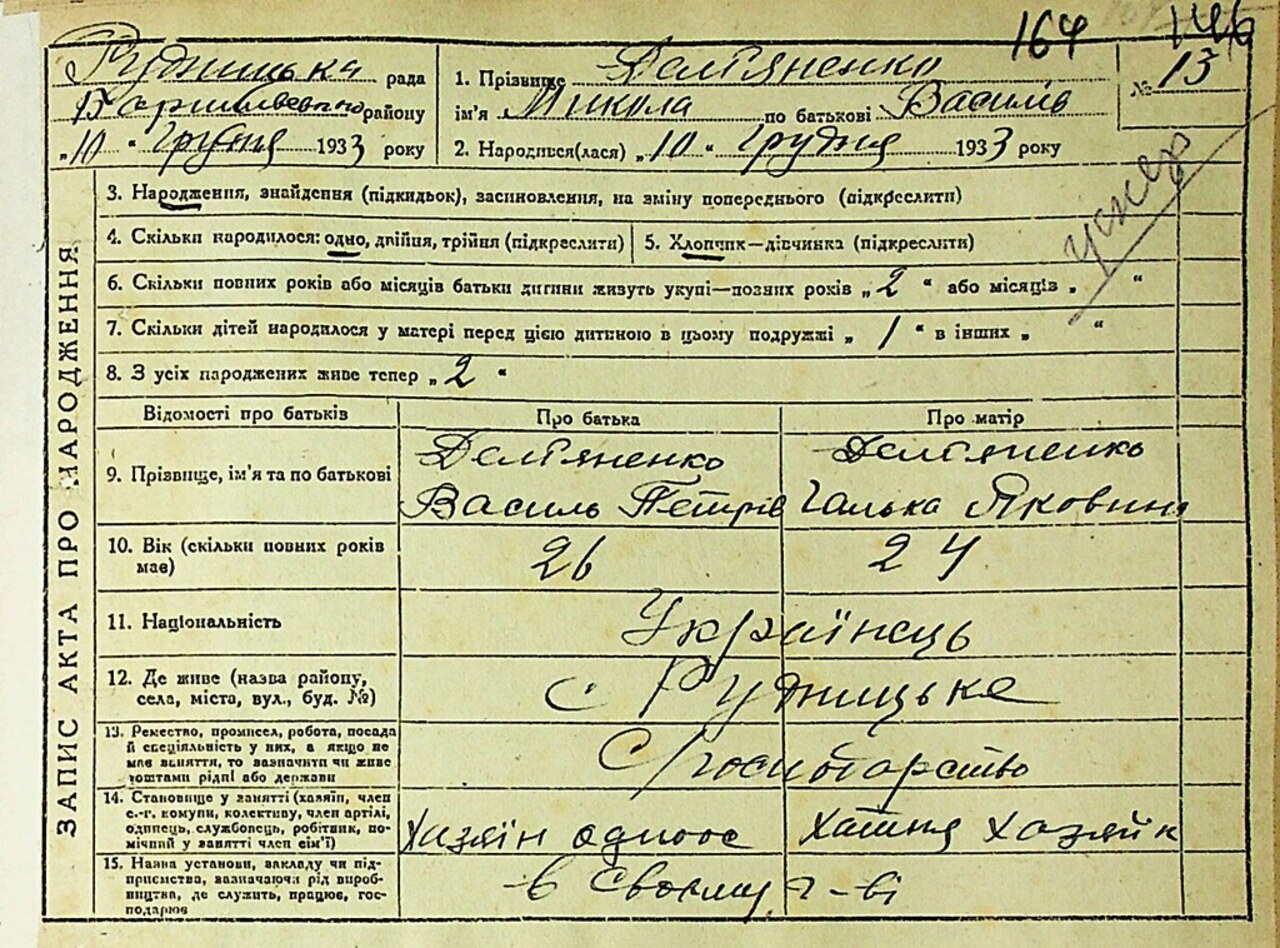 164 146
Рудницька рада
Баришевського району
„10“ грудня 1933 року
1. Прізвище Дем'яненко
ім'я Микола по батькові Василів
2. Народився(лася) „10“ грудня 1933 року
№ 13
3. Народження, знайдення (підкидьок), засиновлення, на зміну попереднього (підкреслити)
4. Скільки народилося: одно, двійня, трійня (підкреслити)
5. Хлопчик—дівчинка (підкреслити)
6. Скільки повних років або місяців батьки дитини живуть укупі—повних років „2“ або місяців „ “
7. Скільки дітей народилося у матері перед цією дитиною в цьому подружжі „1“ в інших „ “
8. З усіх народжених живе тепер „2“
ЗАПИС АКТА ПРО НАРОДЖЕННЯ
Відомості про батьків
Про батька
Про матір
9. Прізвище, ім'я та по батькові
Дем'яненко
Василь Петрів
Дем'яненко
Галька Яковин
10. Вік (скільки повних років
має)
26
24
11. Національність
Українець
12. Де живе (назва району,
села, міста, вул., буд. №)
с Рудницьке
13. Ремество, промисел, робота, посада
й спеціяльність у них, а якщо не
має заняття, то зазначити чи живе
коштами рідні або держави
С/господарство
14. Становище у занятті (хазяїн, член
с.-г. комуни, колективу, член артілі,
одинець, службовець, робітник, по-
мічний у занятті член сім'ї)
Хазяїн одноос
Хатня хазяйк
15. Назва установи, закладу чи під-
приємства, зазначаючи рід вироб-
ництва, де служить, працює, гос-
подарює
в своєму г-ві